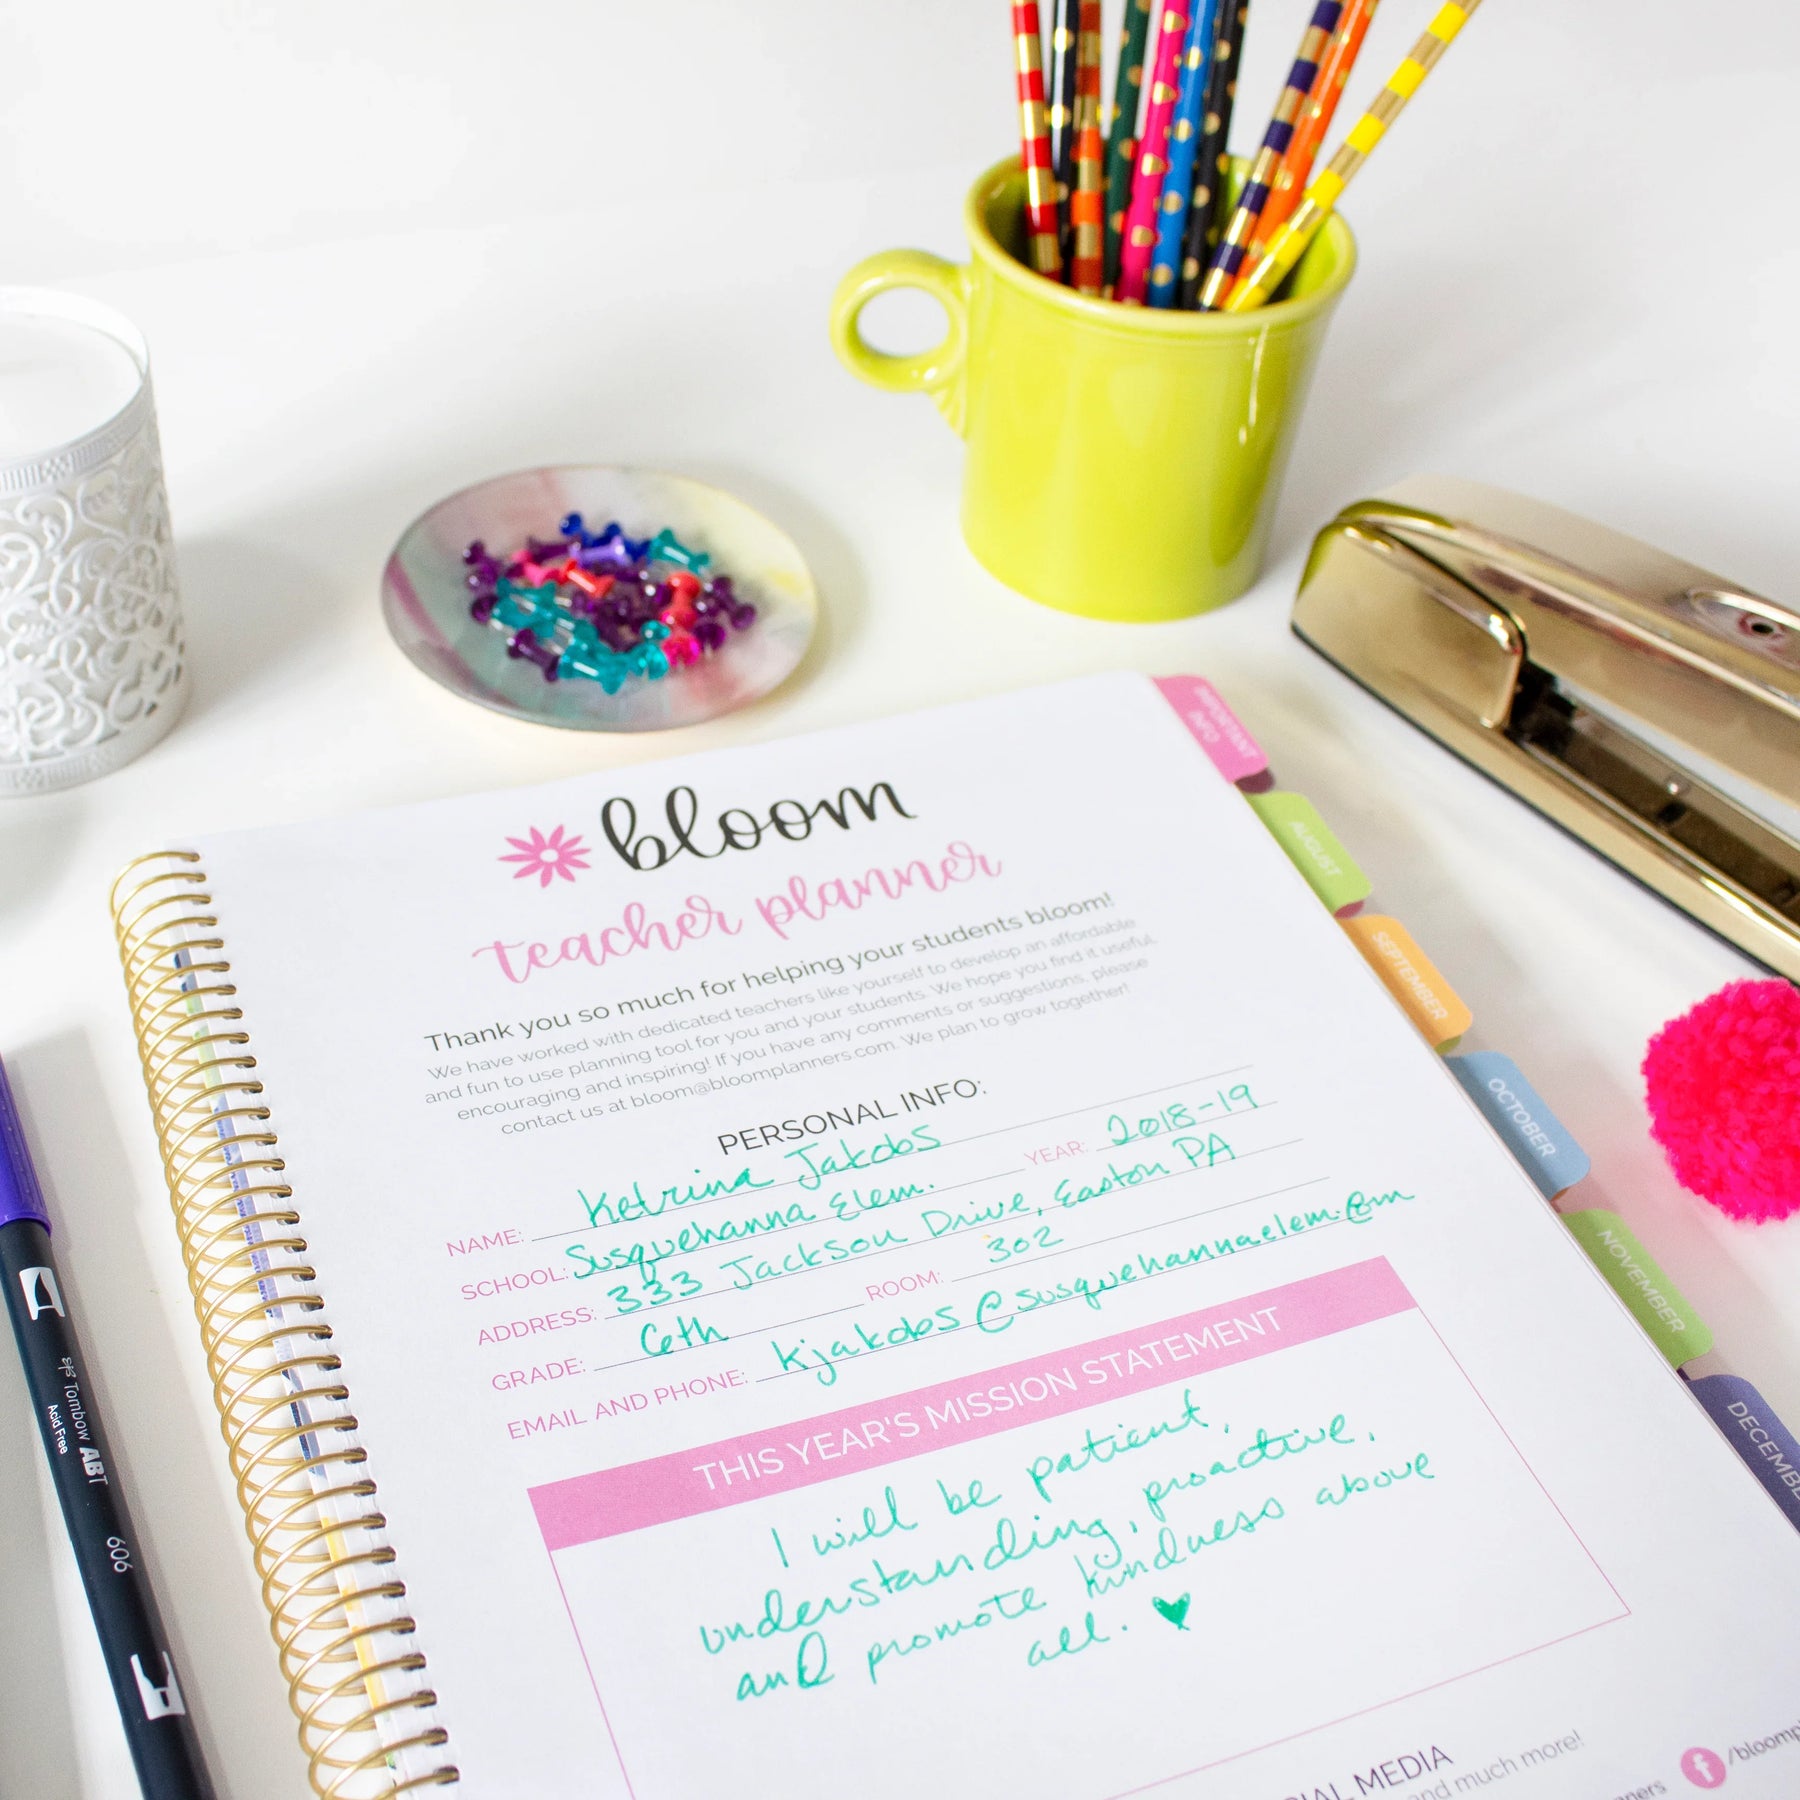 bloom
teacher planner
Thank you so much for helping your students bloom!
We have worked with dedicated teachers like yourself to develop an affordable
and fun to use planning tool for you and your students. We hope you find it useful,
encouraging and inspiring! If you have any comments or suggestions, please
contact us at bloom@bloomplanners.com. We plan to grow together!
PERSONAL INFO:
NAME: Ketrina Jakobs YEAR: 2018-19
SCHOOL: Susquehanna Elem.
ADDRESS: 333 Jackson Drive, Easton PA
GRADE: 6th ROOM: 302
EMAIL AND PHONE: Kjakobs@susquehannaelem.com
THIS YEAR'S MISSION STATEMENT
I will be patient,
understanding, proactive,
and promote kindness above
all.
MEDIA
and much more!
IMPORTANT
INFO
AUGUST
SEPTEMBER
OCTOBER
NOVEMBER
DECEMBE
Tombow ABT
Acid Free
606